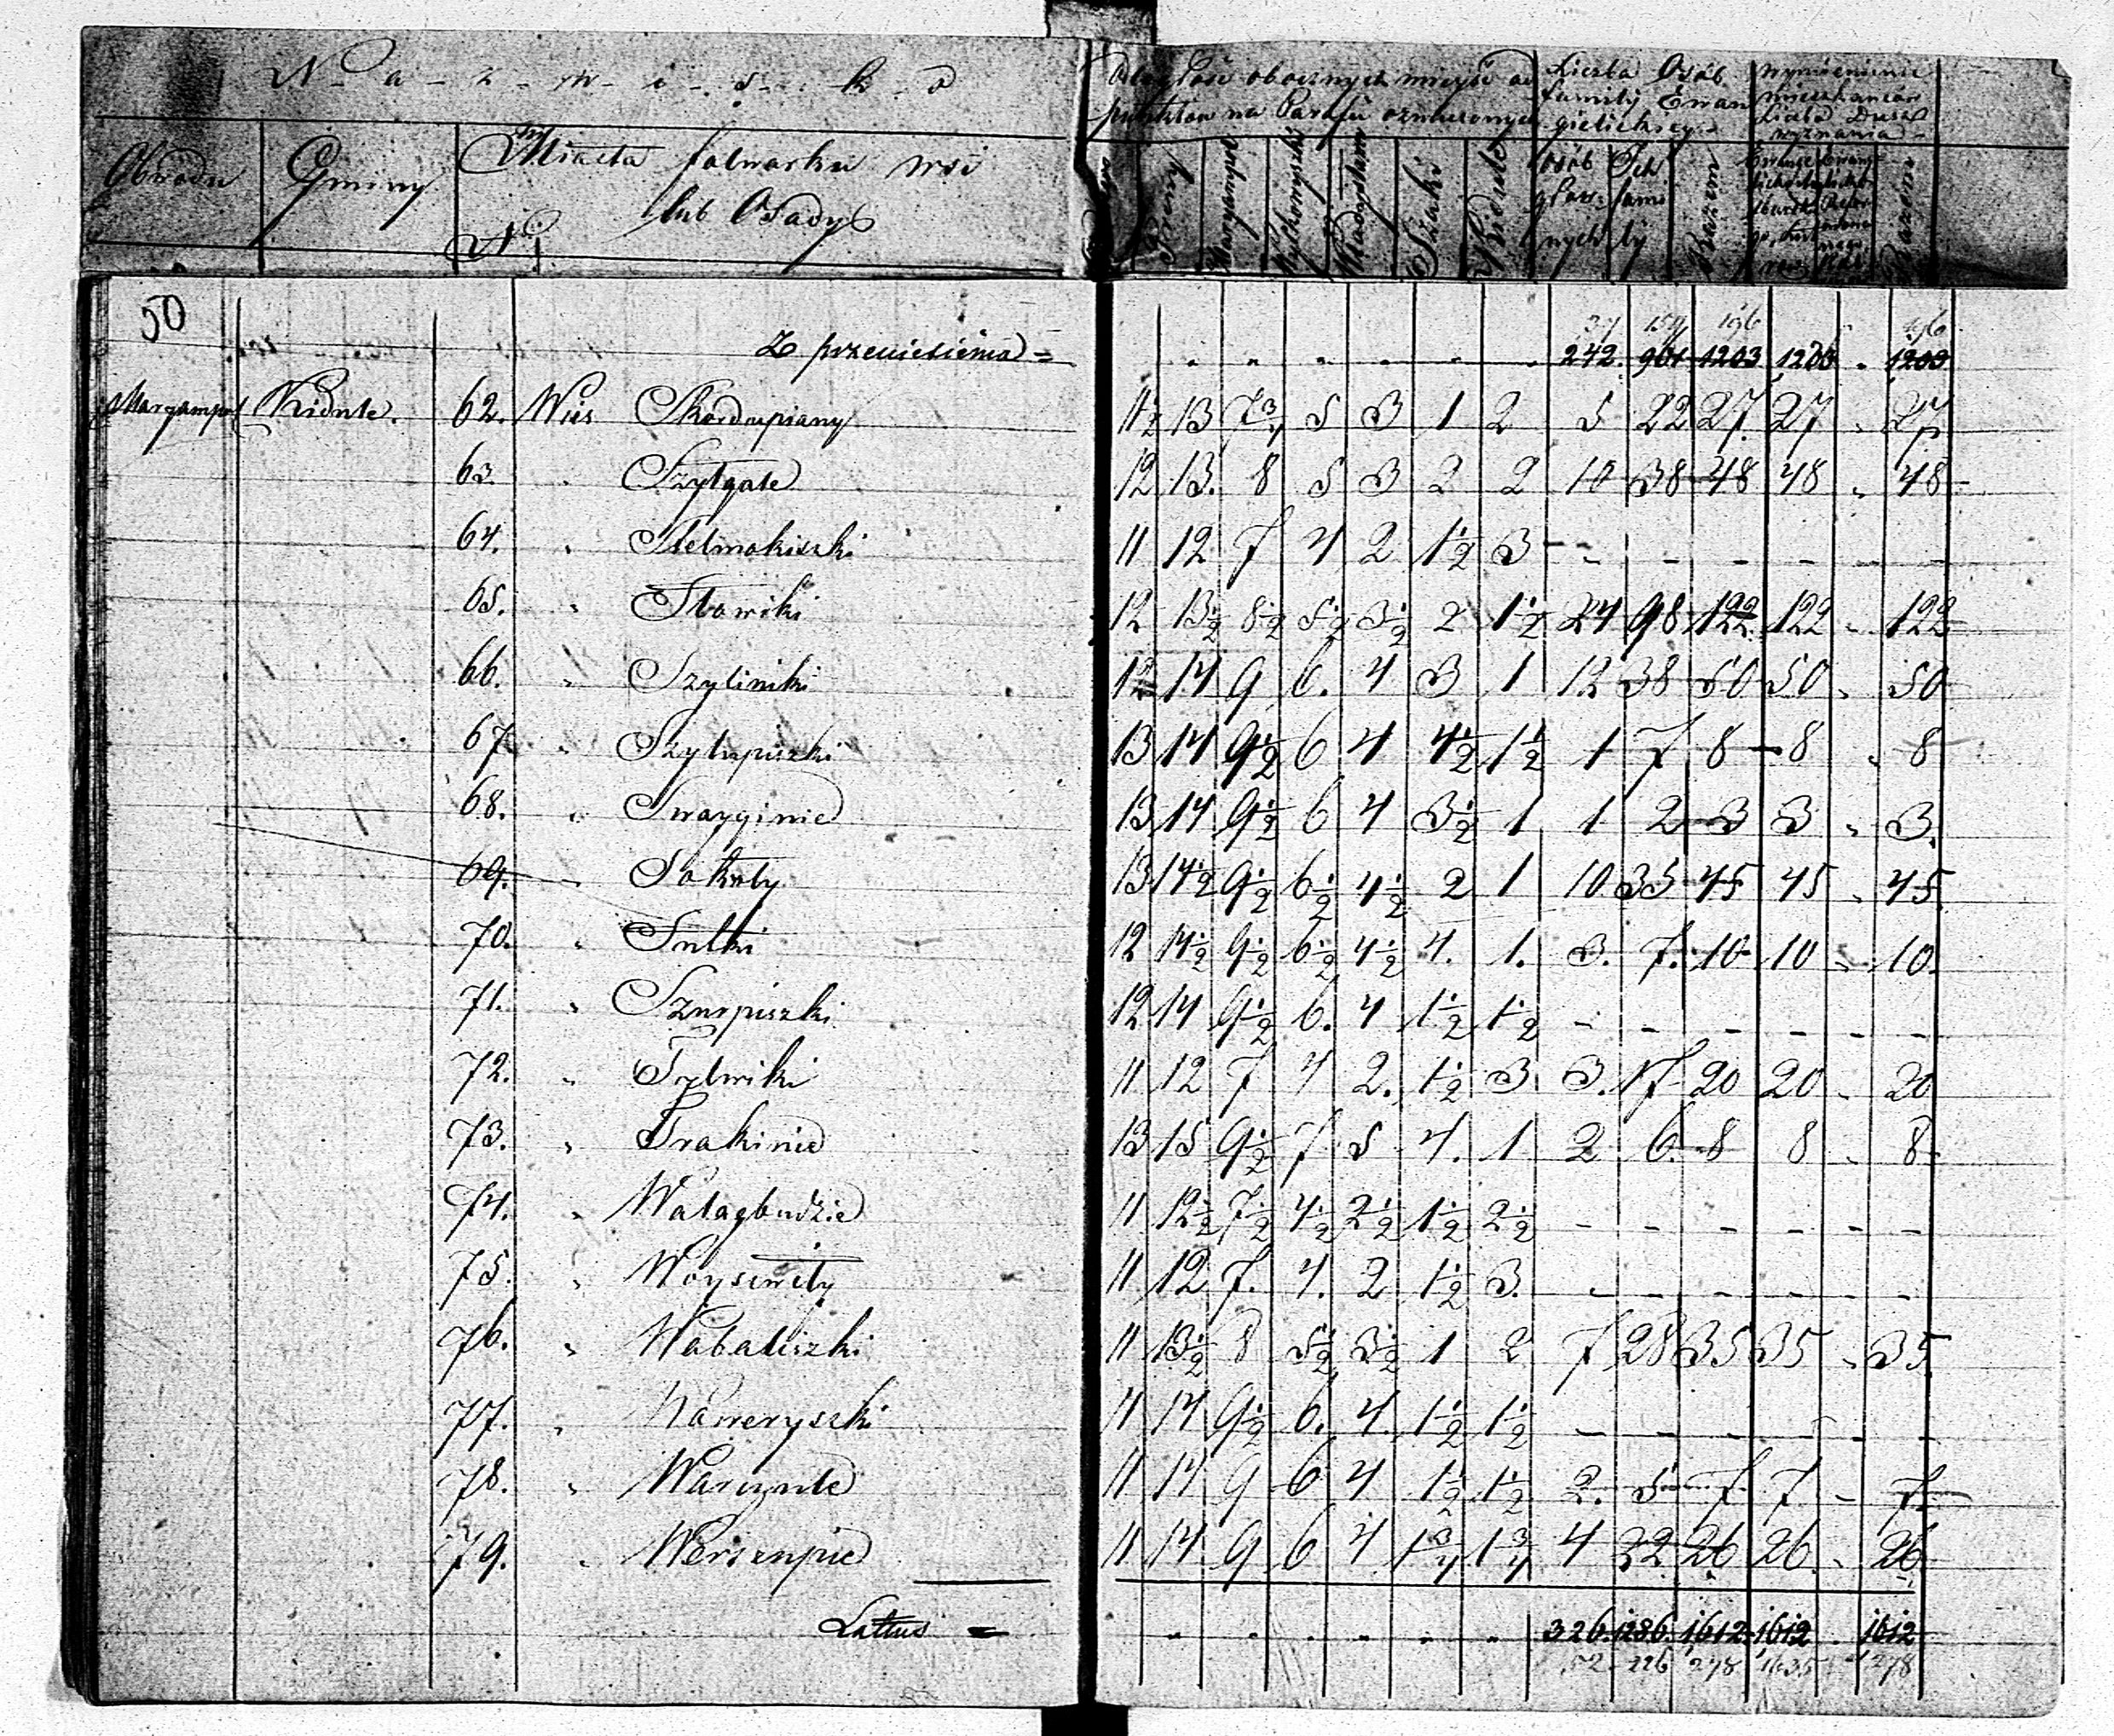 N - a - z - w - i - s - k - o
Obwodu Gminy Miasta folwarku wsi
lub Osady
No
obocznych miejsc od
punktów na Parafii oznaczonych
Liczba Osób
familij Ewan
gielickiey
Wymienienie
mieszkańców
Liczba Dusz
wyznania
Preny Maryampol Wyłkowyszki Władysławow Szaki Kidule
osób głow: nych
Ich fami lij
Razem
Razem
50
37 159 196 196
Z przeniesienia = " " " " " " 242 961 1203 1203 " 1203
Maryampol Kidule. 62. Wieś Skordupiany 11½ 13 7¾ 5 3 1 2 5 22 27 27 " 27
63. " Szylgale 12 13. 8 5 3 2 2 10 38 48 48 " 48
64. " Stelmokiszki 11 12 7 4 2 1½ 3 - - - - - -
65. " Sławiki 12 13½ 8½ 5½ 3½ 2 1½ 24 98 122 122 " 122
66. " Szyliniki 12 14 9 6. 4 3 1 12 38 50 50 " 50
67. " Szylupiszki 13 14 9½ 6 4 4½ 1½ 1 7 8 8 " 8
68. " Swayginie 13 14 9½ 6 4 3½ 1 1 2 3 3 " 3.
69. " Sokoły 13 14½ 9½ 6½ 4½ 2 1 10 35 45 45 " 45.
70. " Sutki 12 14½ 9½ 6½ 4½ 4. 1. 3. 7. 10 10 " 10.
71. " Sznrpiszki 12 14 9½ 6. 4 1½ 1½ - - - - - -
72. " Tylwiki 11 12 7 4 2. 1½ 3 3. 17 20 20 " 20
73. " Trakinie 13 15 9½ 7 5 4. 1 2 6. 8 8 " 8.
74. " Wałagbudzie 11 12½ 7½ 4½ 2½ 1½ 2½ - - - - - -
75. " Woyswiły 11 12 7. 4. 2 1½ 3. - - - - - -
76. " Wabaliszki 11 13½ 8 5½ 3½ 1 2 7 28 35 35 " 35.
77. " Waweryszki 11 14 9½ 6. 4 1½ 1½ - - - - - -
78. " 11 14 9 6 4 1½ 1½ 2. 5 7 7 - 7.
79. " Werszupie 11 14 9 6 4 1¾ 1¾ 4 22 26 26 " 26
Lattus = " " " " " " " 326. 1286. 1612. 1612 " 1612
52 226 278 1635 278